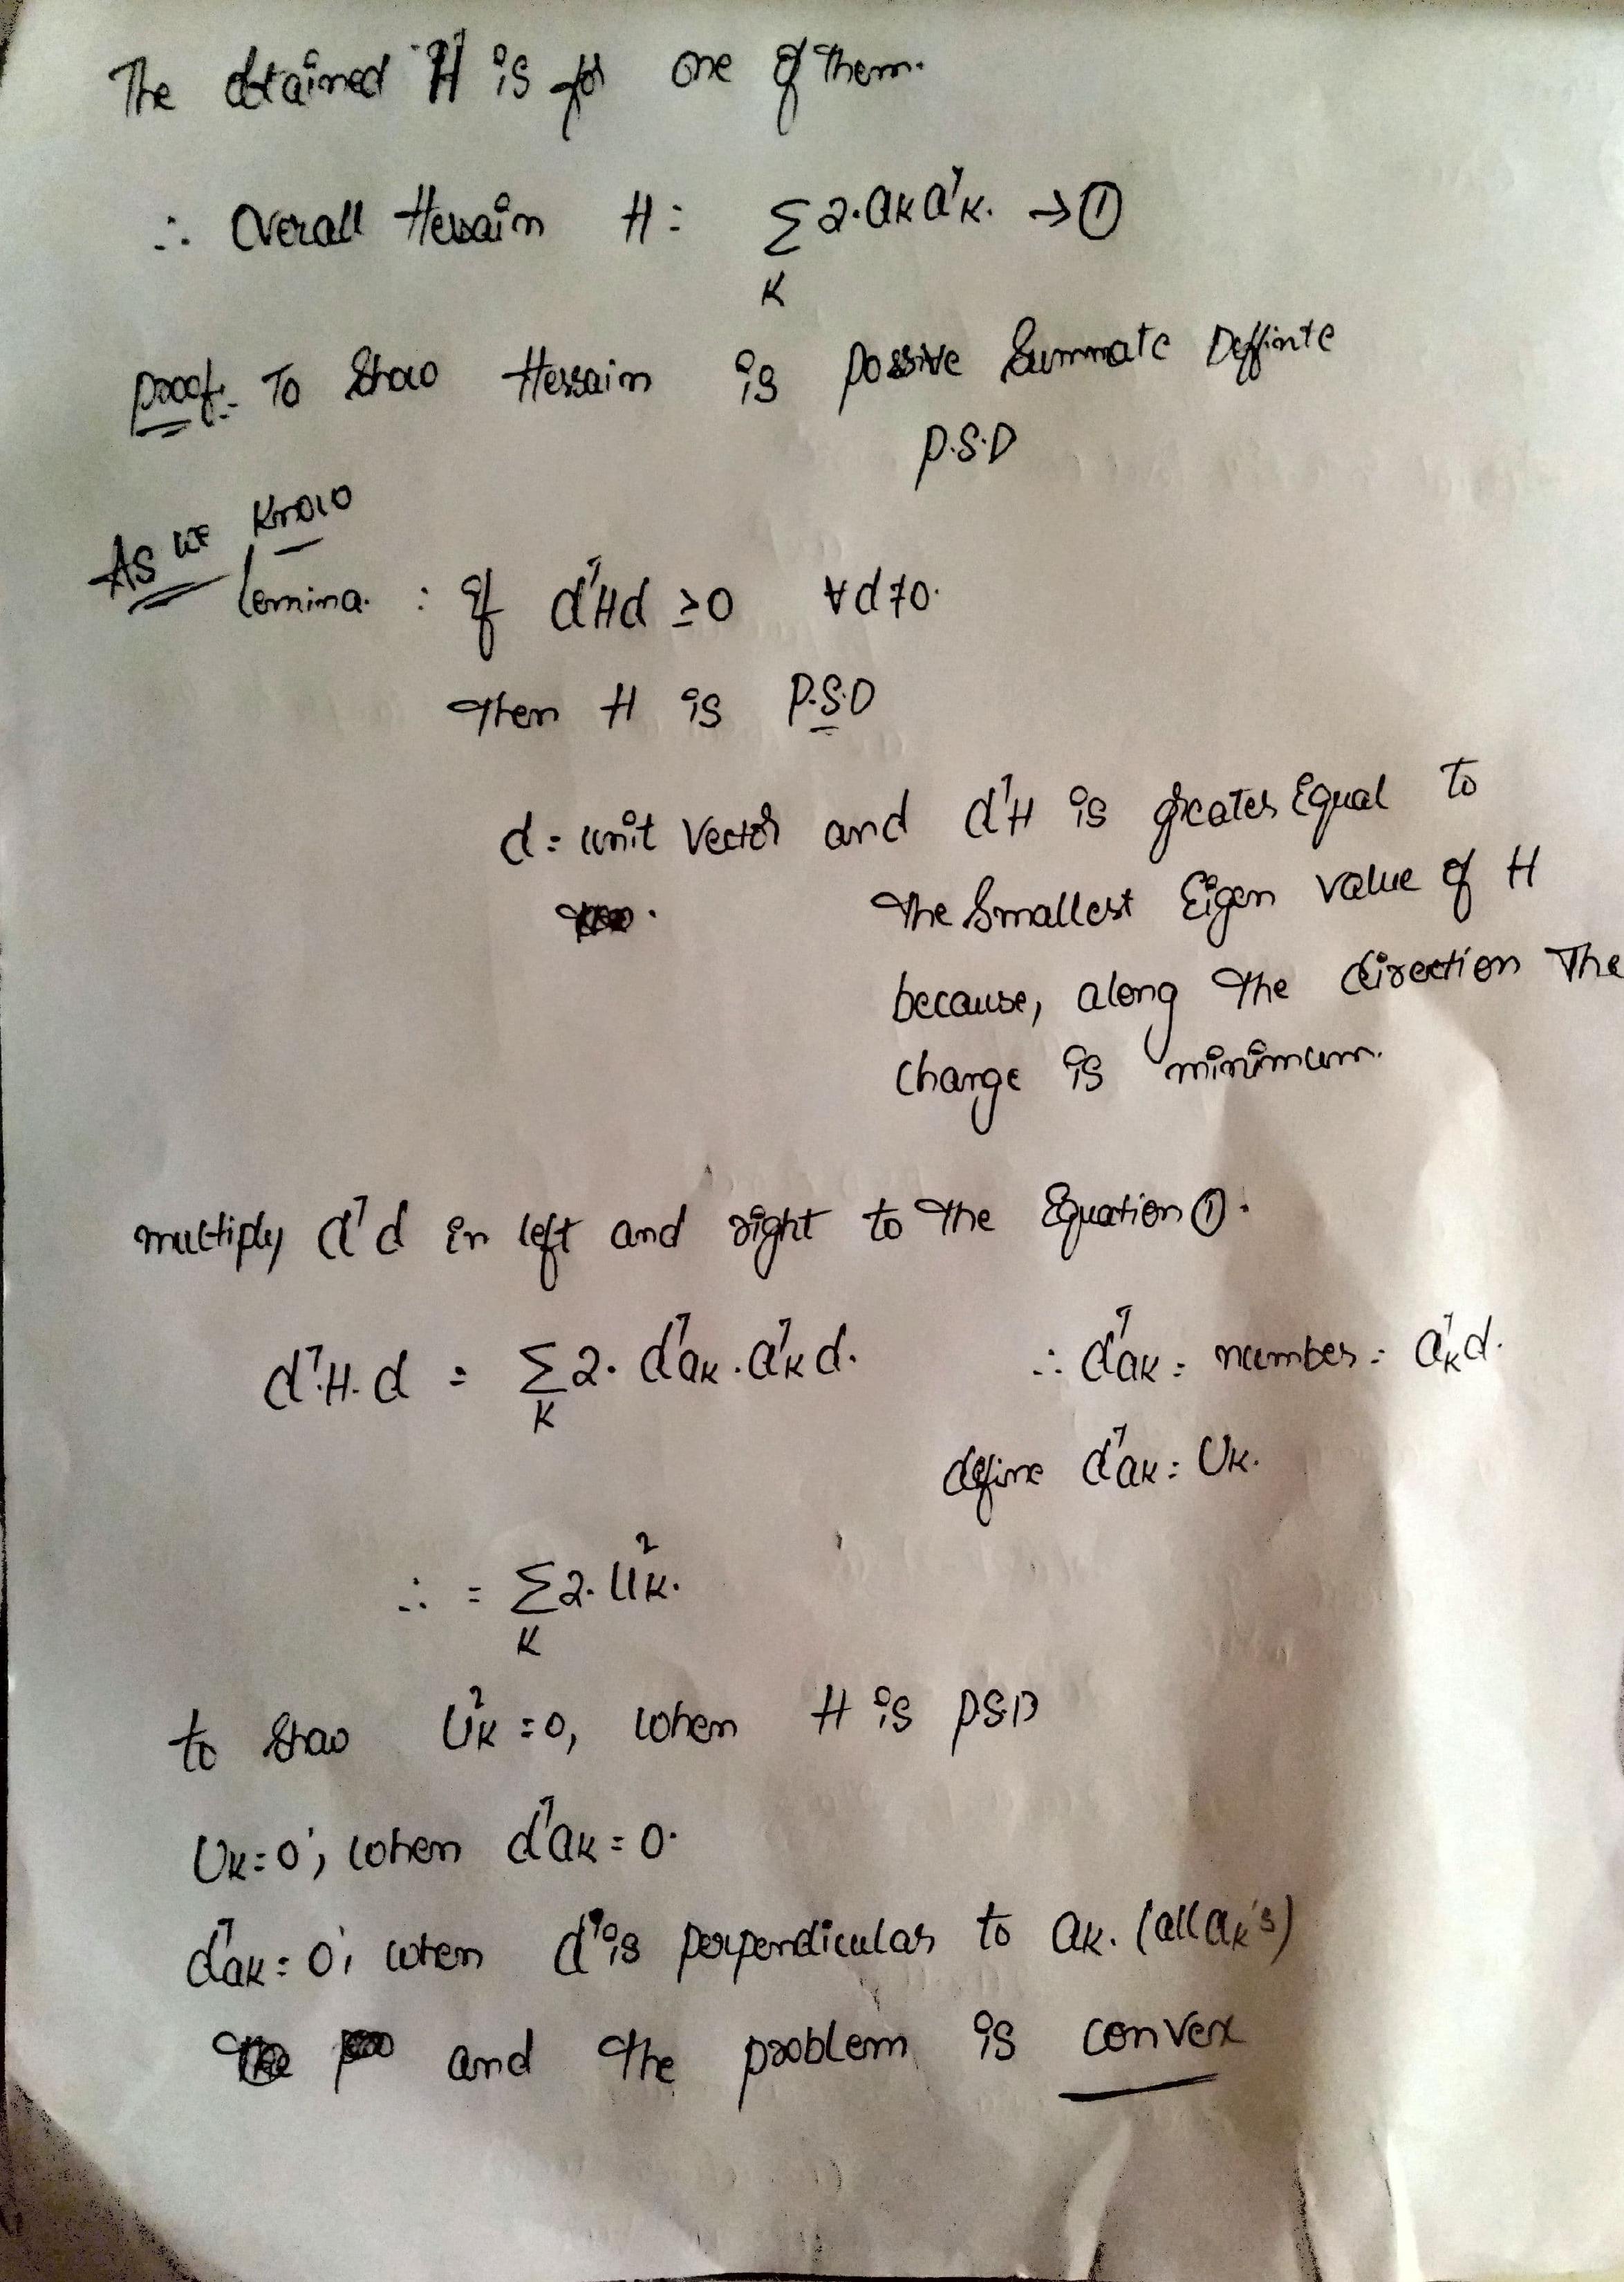 The obtained H is for one of them.
∴ Overall Hessain H = Σ 2·aₖaᵀₖ. → ①
K
Proof:- To Show Hessain is Possive Summate Deffinte
P.S.D
As we know
lemma : if dᵀHd ≥ 0 ∀ d ≠ 0.
then H is P.S.D
d = unit vector and dᵀH is greater Equal to
the Smallest Eigen value of H
because, along the direction The
change is minimum.
multiply dᵀ d in left and right to the Equation ①.
dᵀ·H·d = Σ 2· dᵀaₖ·aᵀₖ d. ∴ dᵀaₖ = number = aᵀₖd.
K
define dᵀaₖ = Uₖ.
∴ = Σ 2· U²ₖ.
K
to Show U²ₖ = 0, when H is P.S.D
Uₖ = 0; when dᵀaₖ = 0.
dᵀaₖ = 0; when dᵀ is perpendicular to aₖ. (all aₖ's)
and the problem is convex